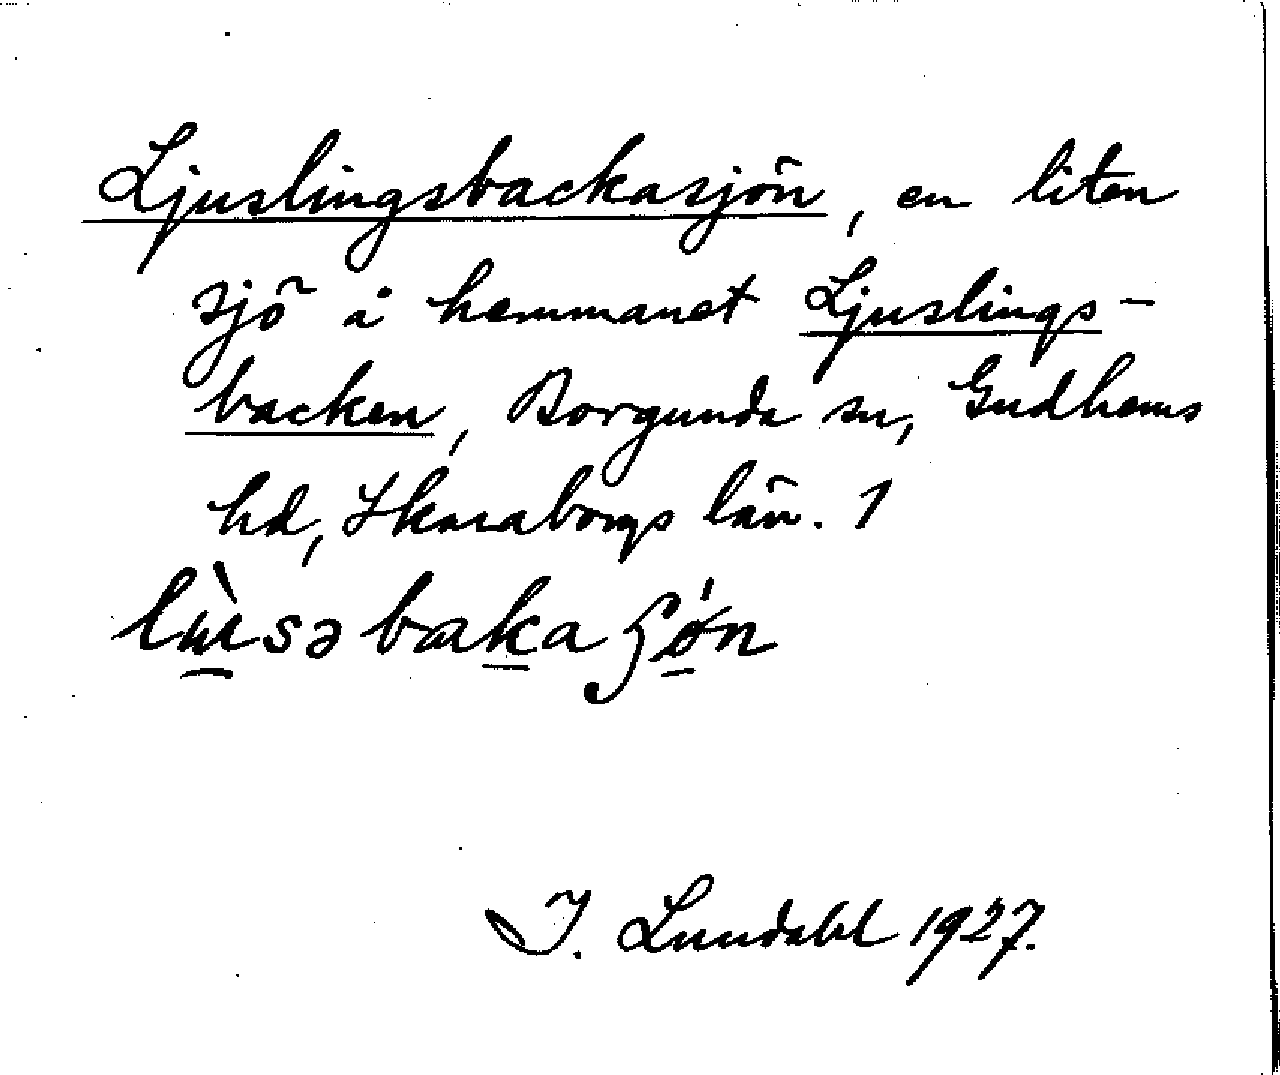 Ljuslingsbackasjön, en liten
sjö å hemmanet Ljuslings-
backen, Borgunda sn, Gudhems
hd, Skaraborgs län. 1
I. Lundahl 1927.